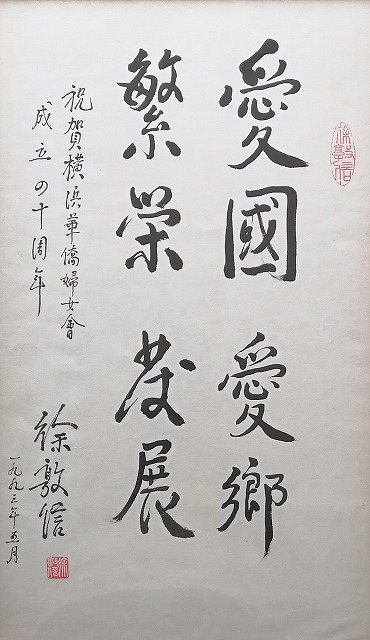 愛國愛鄉
繁栄发展
祝賀橫浜華僑婦女會
成立四十周年
徐敦信
一九九三年五月
徐敦信